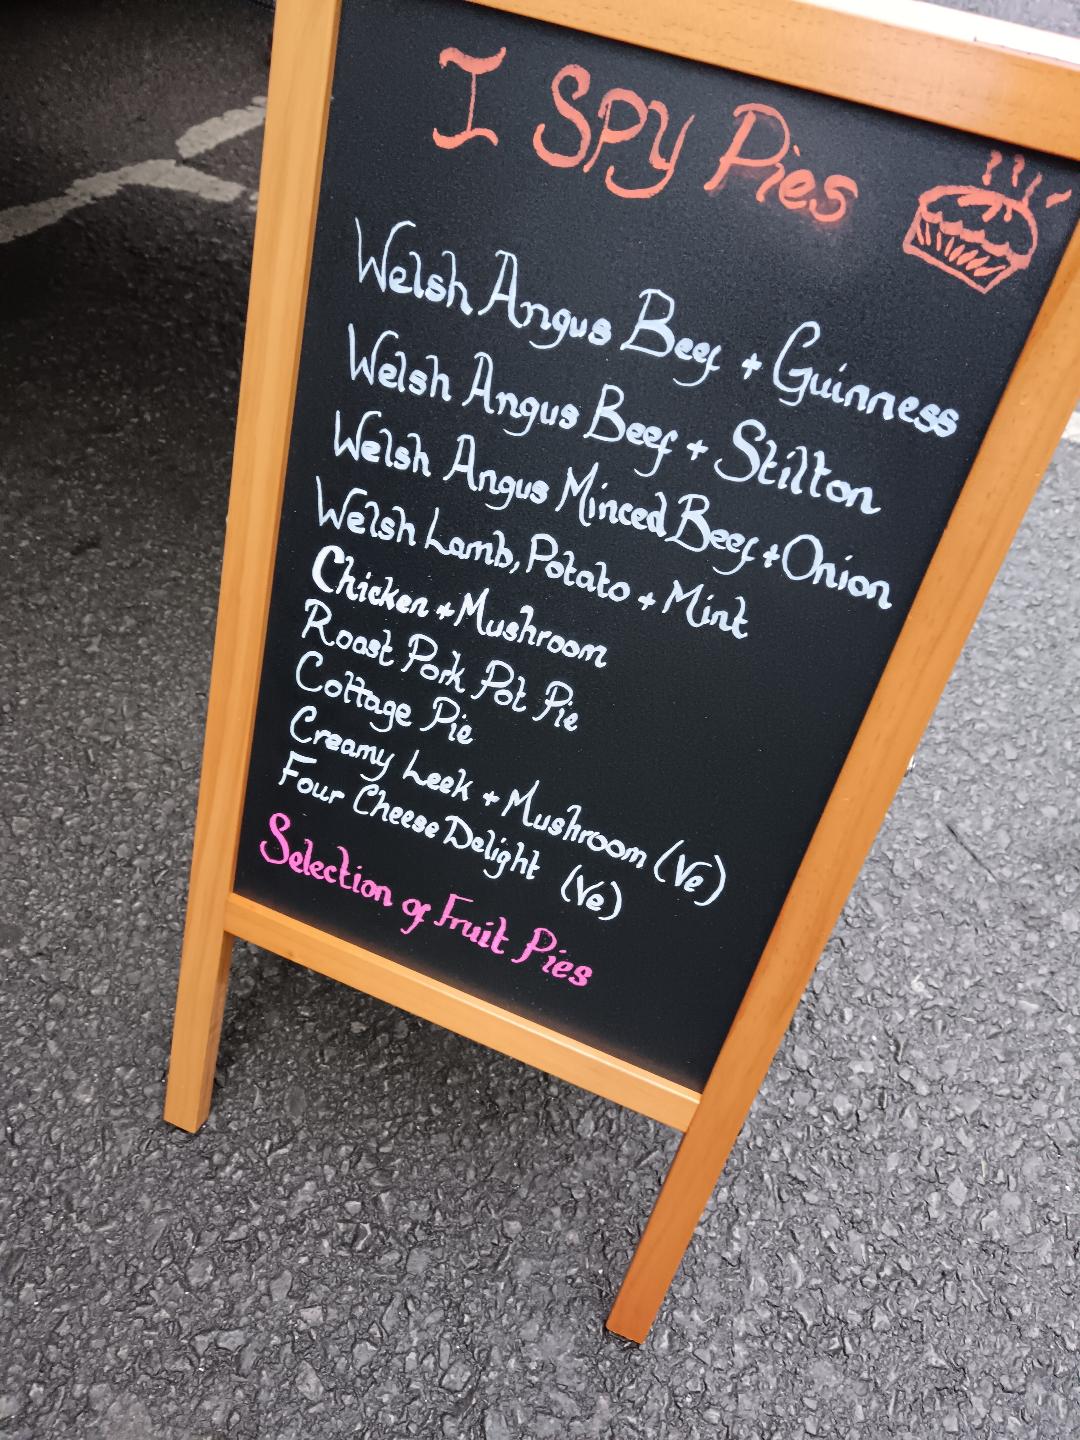 I SPY Pies
Welsh Angus Beef + Guinness
Welsh Angus Beef + Stilton
Welsh Angus Minced Beef + Onion
Welsh Lamb, Potato + Mint
Chicken + Mushroom
Roast Pork Pot Pie
Cottage Pie
Creamy Leek + Mushroom (Ve)
Four Cheese Delight (Ve)
Selection of Fruit Pies